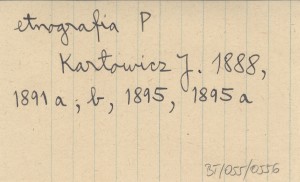 etnografia P
Karłowicz J. 1888,
1891 a; b, 1895, 1895 a
BJ/055/0556